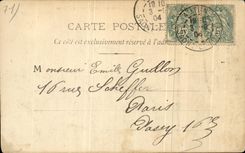 CARTE POSTALE
Ce côté est exclusivement réservé à l'adresse
Monsieur Emile Guillon
16 rue Scheffer
Paris
Passy 16e